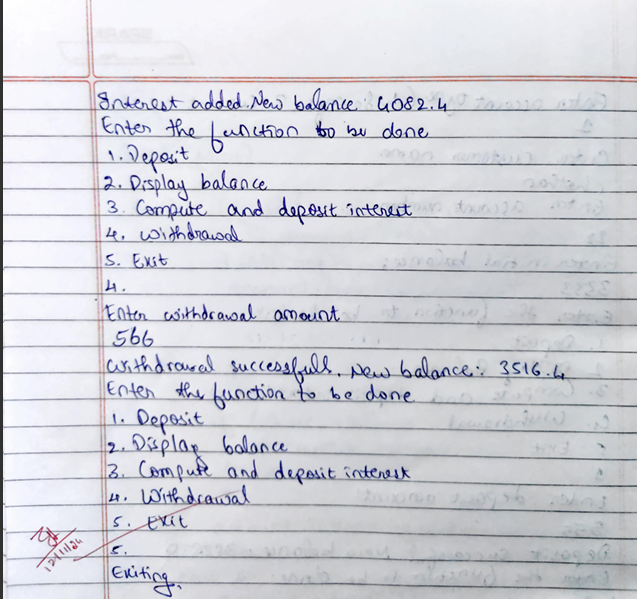 Interest added. New balance: 4082.4
Enter the function to be done
1. Deposit
2. Display balance
3. Compute and deposit interest
4. Withdrawal
5. Exit
4.
Enter withdrawal amount
566
Withdrawal successfull. New balance: 3516.4
Enter the function to be done
1. Deposit
2. Display balance
3. Compute and deposit interest
4. Withdrawal
5. Exit
5.
Exiting.
12/11/24